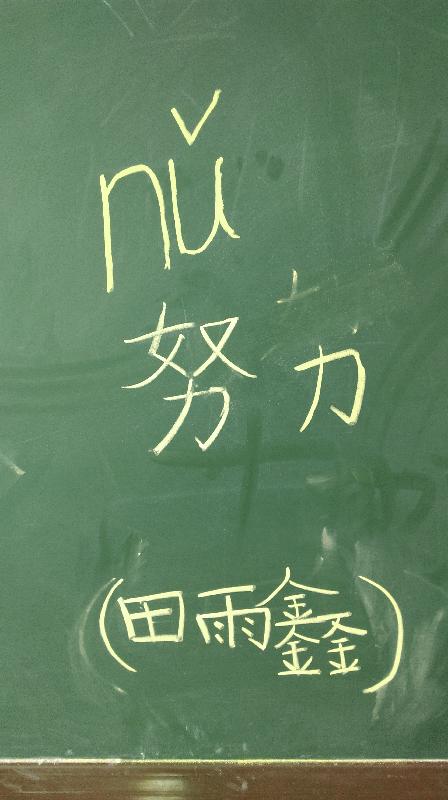 nǔ
努力
(田雨鑫)